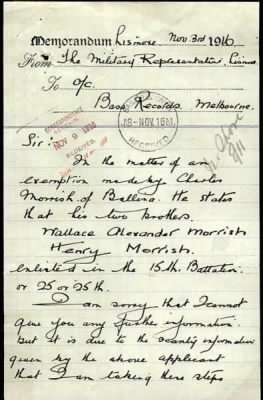 Memorandum Lismore Nov. 3rd 1916
From The Military Representative, Lismore
To O/C.
Base Records, Melbourne.
NOV 9 1916
RECEIVED.
8-NOV.1916
RECEIVED
Sir:
In the matter of an
exemption made by Charles
Morrish of Ballina. He states
that his two brothers.
Wallace Alexander Morrish
Henry Morrish.
enlisted in the 15th Battalion
or 25 or 26th.
I am sorry that I cannot
give you any further information
but it is due to the scanty information
given by the above applicant
that I am taking these steps